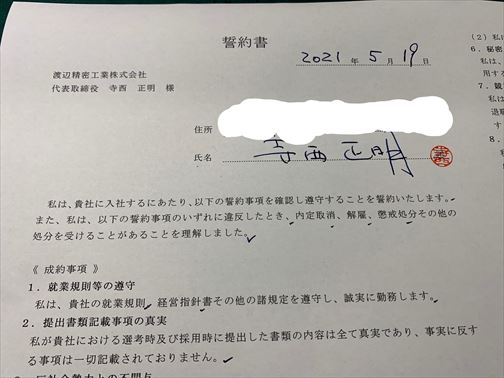 誓約書
2021年5月19日
渡辺精密工業株式会社
代表取締役 寺西 正明 様
住所
氏名 寺西 正明
私は、貴社に入社するにあたり、以下の誓約事項を確認し遵守することを誓約いたします。
また、私は、以下の誓約事項のいずれに違反したとき、内定取消、解雇、懲戒処分その他の
処分を受けることがあることを理解しました。
《 成約事項 》
1.就業規則等の遵守
私は、貴社の就業規則、経営指針書その他の諸規定を遵守し、誠実に勤務します。
2.提出書類記載事項の真実
私が貴社における選考時及び採用時に提出した書類の内容は全て真実であり、事実に反す
る事項は一切記載されておりません。
(2)私に
6.秘密
私は、
用する
7.競
私は
退職
す
8.